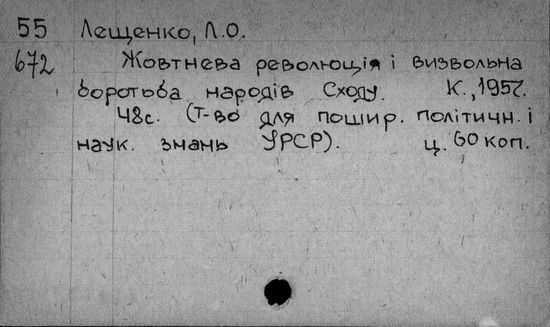 55 Лещенко, Л.О.
672 Жовтнева революція і визвольна
боротьба народів Сходу. К., 1957.
48с. (Т-во для пошир. політичн. і
наук. знань УРСР). ц. 60 коп.